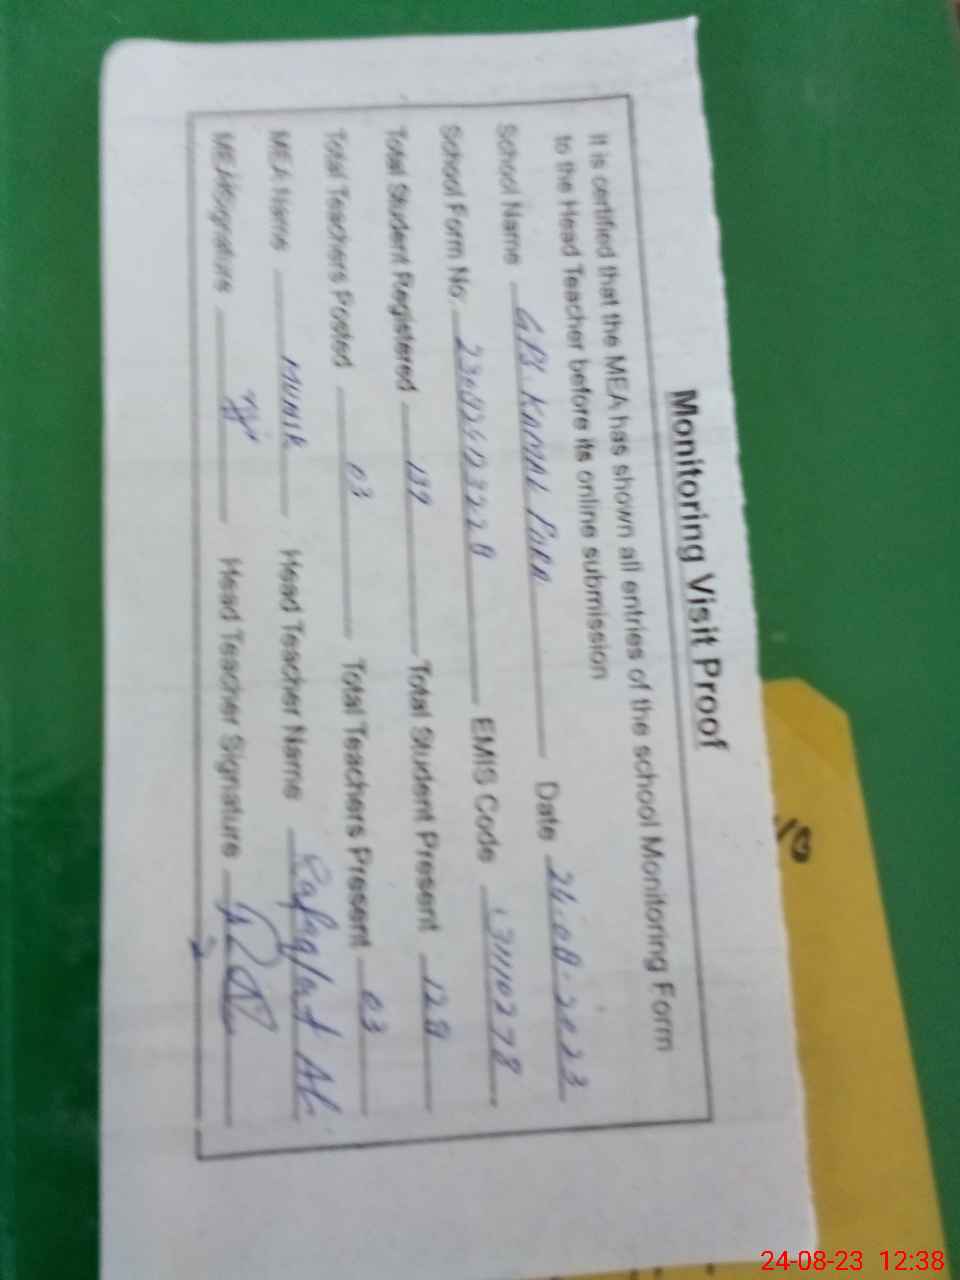 Monitoring Visit Proof
It is certified that the MEA has shown all entries of the school Monitoring Form
to the Head Teacher before its online submission
School Name GPS KAMAL PURA Date 24.08.2023
School Form No. EMIS Code
Total Student Registered 139 Total Student Present 128
Total Teachers Posted 03 Total Teachers Present 03
MEA Name MUNIR Head Teacher Name Ali
MEA Signature Head Teacher Signature
24-08-23 12:38